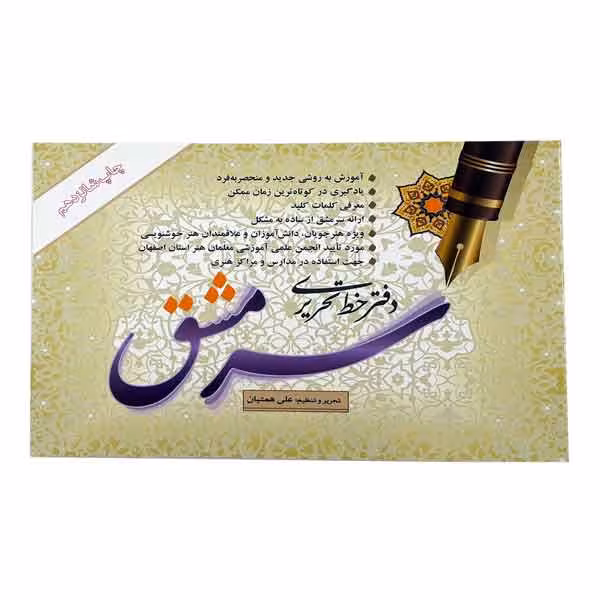 چاپ شانزدهم
آموزش به روشی جدید و منحصربه‌فرد
یادگیری در کوتاه‌ترین زمان ممکن
معرفی کلمات کلید
ارائه سرمشق از ساده به مشکل
ویژه هنرجویان، دانش‌آموزان و علاقمندان هنر خوشنویسی
مورد تأیید انجمن علمی آموزشی معلمان هنر استان اصفهان
جهت استفاده در مدارس و مراکز هنری
دفتر خط تحریری
سرمشق
تحریر و تنظیم: علی همتیان